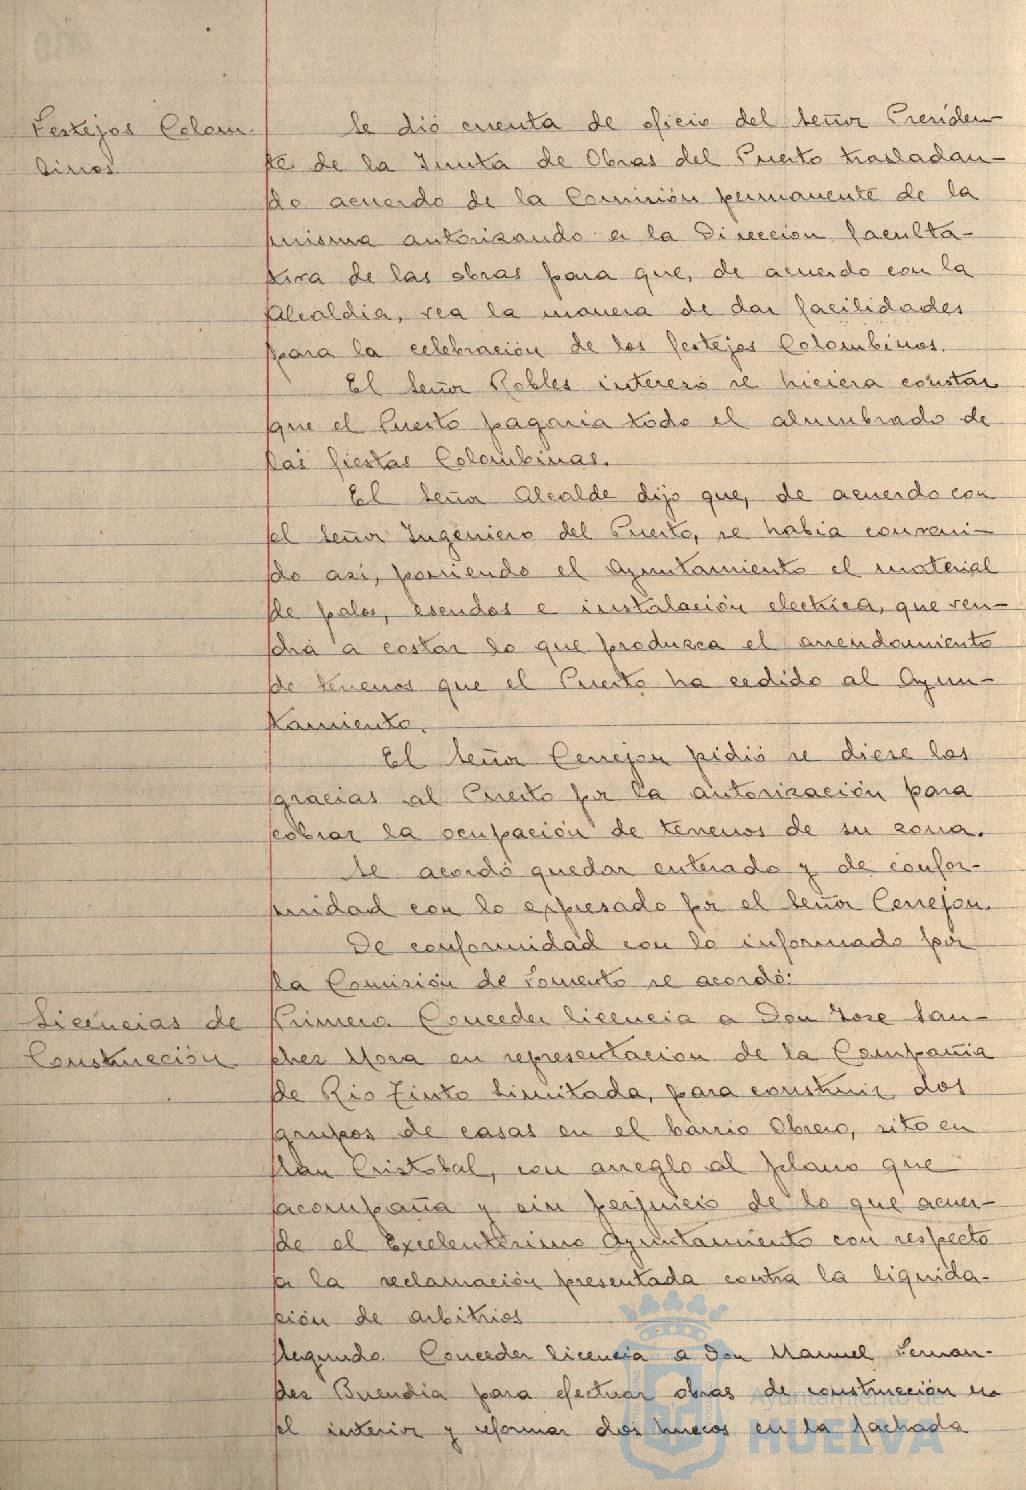 Festejos Colom-
binos
Se dió cuenta de oficio del Señor Presiden-
te de la Junta de Obras del Puerto trasladan-
do acuerdo de la Comisión permanente de la
misma autorizando a la Dirección faculta-
tiva de las obras para que, de acuerdo con la
Alcaldía, vea la manera de dar facilidades
para la celebración de los festejos Colombinos.
El Señor Robles interesó se hiciera constar
que el Puerto pagaria todo el alumbrado de
las fiestas Colombinas.
El Señor Alcalde dijo que, de acuerdo con
el Señor Ingeniero del Puerto, se habia conveni-
do así, poniendo el Ayuntamiento el material
de palos, escudos e instalación electrica, que ven-
drá a costar lo que produzca el arrendamiento
de terrenos que el Puerto ha cedido al Ayun-
tamiento.
El Señor Cerrejon pidió se diese las
gracias al Puerto por la autorización para
cobrar la ocupación de terrenos de su zona.
Se acordó quedar enterado y de confor-
midad con lo expresado por el Señor Cerrejon.
De conformidad con lo informado por
la Comisión de Fomento se acordó:
Licencias de
Construcción
Primero. Conceder licencia a Don Jose San-
chez Mora en representacion de la Compañia
de Rio Tinto Limitada, para construir dos
grupos de casas en el barrio Obrero, sito en
San Cristobal, con arreglo al plano que
acompaña y sin perjuicio de lo que acuer-
de el Excelentísimo Ayuntamiento con respecto
a la reclamación presentada contra la liquida-
ción de arbitrios
Segundo. Conceder licencia a Don Manuel Fernan-
dez Buendia para efectuar obras de construcción en
el interior y reformar dos huecos en la fachada
Ayuntamiento de
HUELVA